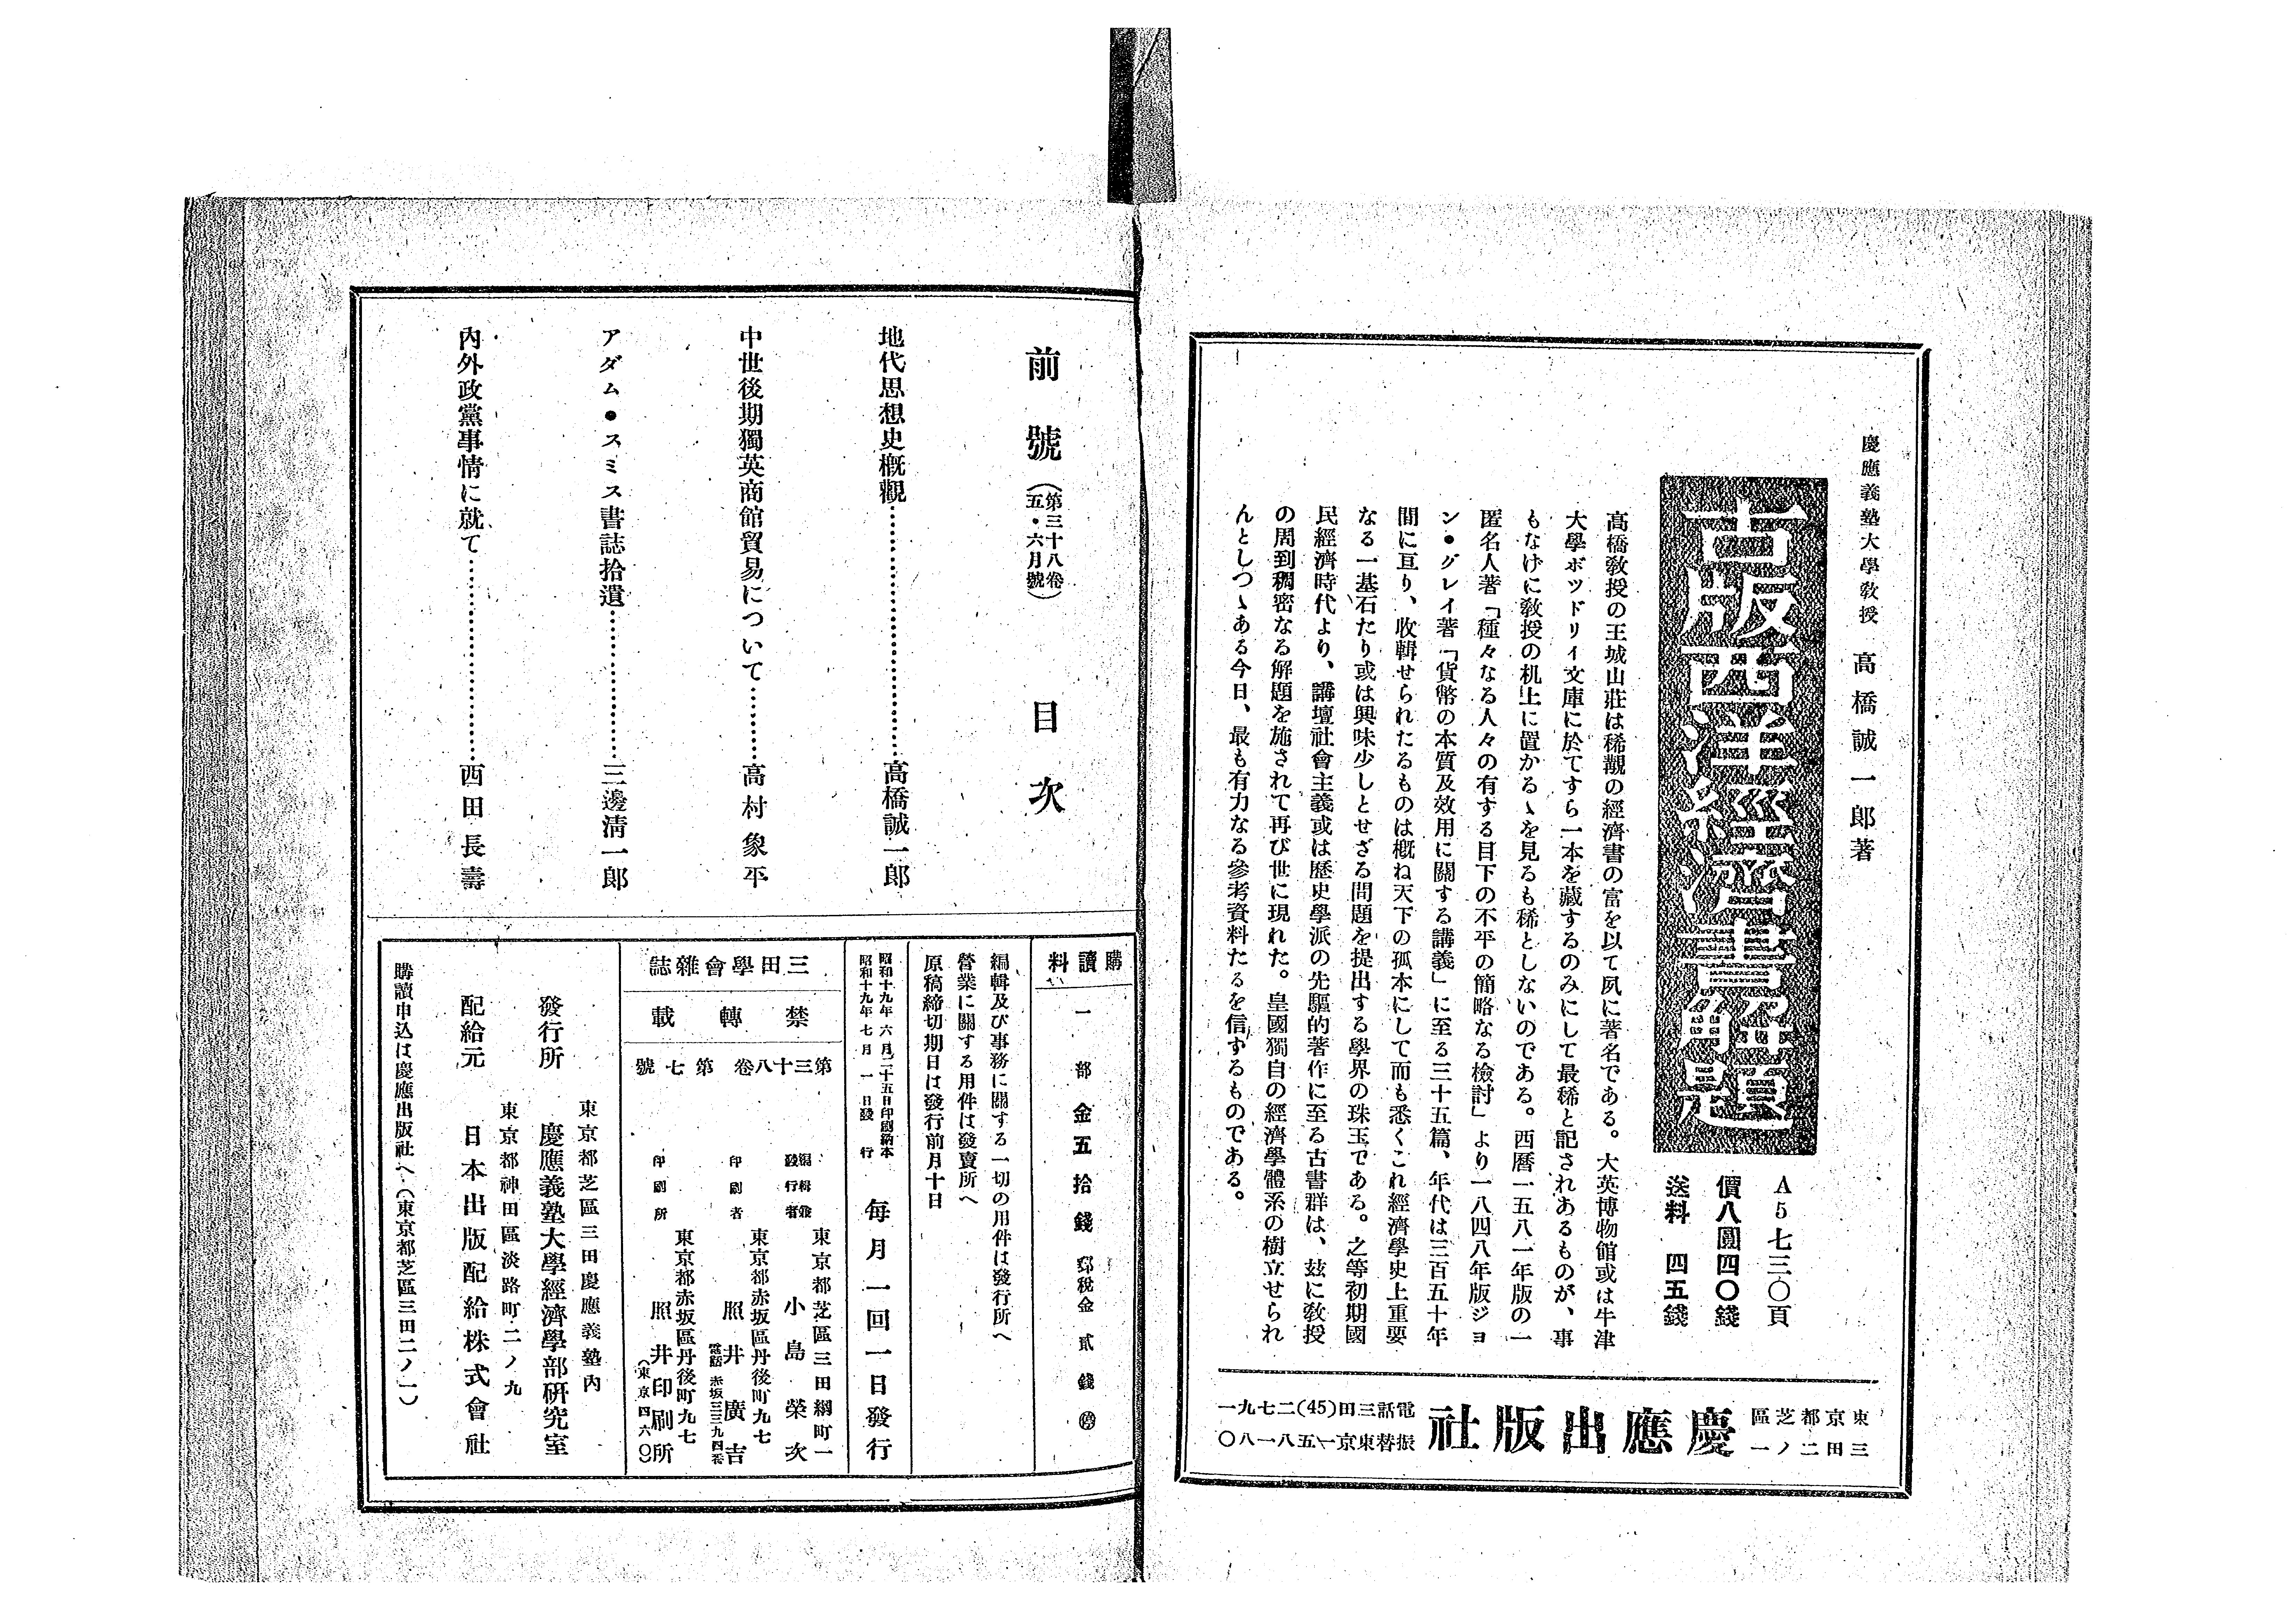 慶應義塾大學敎授 高橋誠一郎著
古版西洋經濟書解題
A5 七三〇頁
價八圓四〇錢
送料 四五錢
高橋敎授の王城山莊は稀覯の經濟書の富を以て夙に著名である。大英博物館或は牛津
大學ボツドリイ文庫に於てすら一本を藏するのみにして最稀と記されあるものが、事
もなげに敎授の机上に置かるゝを見るも稀としないのである。西曆一五八一年版の一
匿名人著「種々なる人々の有する目下の不平の簡略なる檢討」より一八四八年版ジョ
ン・グレイ著「貨幣の本質及效用に關する講義」に至る三十五篇、年代は三百五十年
間に亘り、收輯せられたるものは槪ね天下の孤本にして而も悉くこれ經濟學史上重要
なる一基石たり或は興味少しとせざる問題を提出する學界の珠玉である。之等初期國
民經濟時代より、講壇社會主義或は歷史學派の先驅的著作に至る古書群は、玆に敎授
の周到稠密なる解題を施されて再び世に現れた。皇國獨自の經濟學體系の樹立せられ
んとしつゝある今日、最も有力なる參考資料たるを信ずるものである。
東京都芝區
三田二ノ一
慶應出版社
電話三田(45)二七九一
振替東京一五八一八〇
前號 (第三十八卷
五・六月號) 目次
地代思想史槪觀……高橋誠一郎
中世後期獨英商館貿易について……高村象平
アダム・スミス書誌拾遺……三邊淸一郎
內外政黨事情に就て……西田長壽
購讀料
一部金五拾錢 郵稅金貳錢
編輯及び事務に關する一切の用件は發行所へ
營業に關する用件は發賣所へ
原稿締切期日は發行前月十日
昭和十九年六月二十五日印刷納本
昭和十九年七月一日發行
每月一回一日發行
三田學會雜誌
禁轉載
第三十八卷 第七號
編輯兼
發行者
東京都芝區三田綱町一
小島榮次
印刷者
東京都赤坂區丹後町九七
照井廣吉
電話 赤坂三三九四番
印刷所
東京都赤坂區丹後町九七
照井印刷所
(東京四六〇)
東京都芝區三田慶應義塾內
發行所 慶應義塾大學經濟學部硏究室
東京都神田區淡路町二ノ九
配給元 日本出版配給株式會社
購讀申込は慶應出版社へ(東京都芝區三田二ノ一)